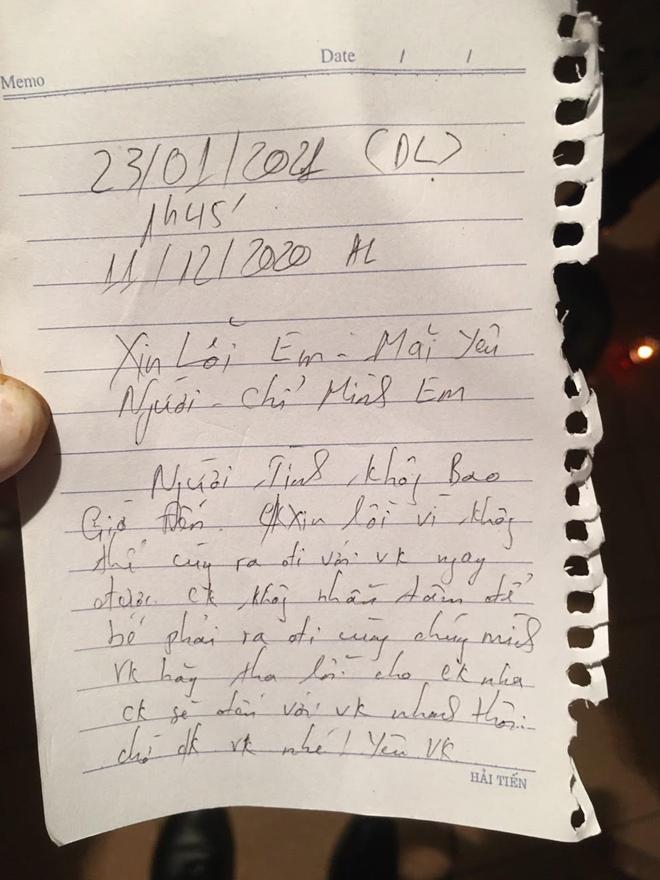 Memo Date / /
23/01/2021 (DL)
1h45'
11/12/2020 AL
Xin Lỗi Em - Mãi Yêu
Người - Chỉ Mình Em
Người Tình Không Bao
Giờ Đến. CK Xin lỗi vì không
thể cùng ra đi với vk ngay
được. ck không nhẫn tâm để
bé phải ra đi cùng chúng mình
VK hãy tha lỗi cho ck nha
ck sẽ đến với vk nhanh thôi.
chờ ck vk nhé! Yêu VK
HẢI TIẾN